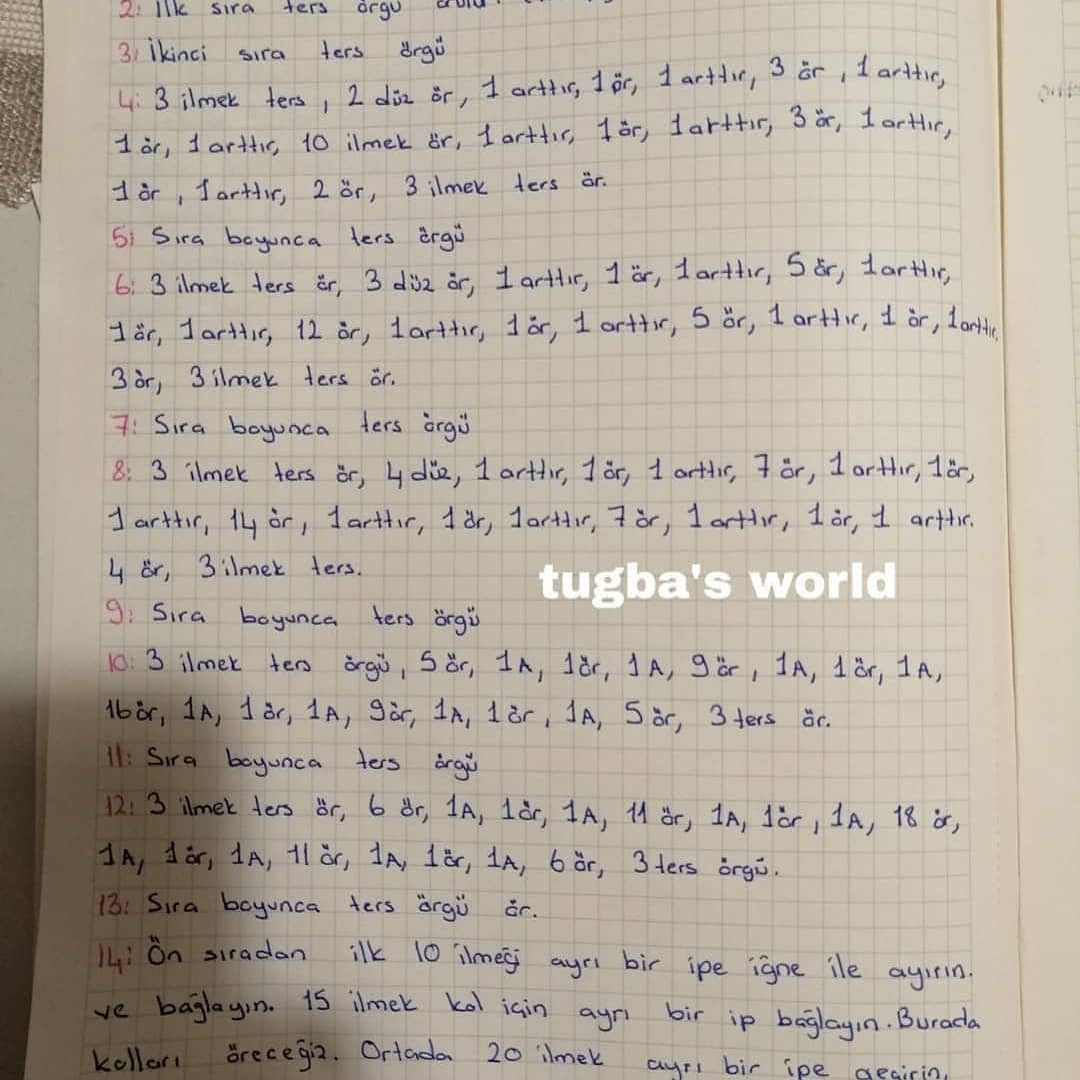 2: İlk sıra ters örgü
3: İkinci sıra ters örgü
4: 3 ilmek ters, 2 düz ör, 1 arttır, 1 ör, 1 arttır, 3 ör, 1 arttır,
1 ör, 1 arttır, 10 ilmek ör, 1 arttır, 1 ör, 1 arttır, 3 ör, 1 arttır,
1 ör, 1 arttır, 2 ör, 3 ilmek ters ör.
5: Sıra boyunca ters örgü
6: 3 ilmek ters ör, 3 düz ör, 1 arttır, 1 ör, 1 arttır, 5 ör, 1 arttır,
1 ör, 1 arttır, 12 ör, 1 arttır, 1 ör, 1 arttır, 5 ör, 1 arttır, 1 ör, 1 arttır,
3 ör, 3 ilmek ters ör.
7: Sıra boyunca ters örgü
8: 3 ilmek ters ör, 4 düz, 1 arttır, 1 ör, 1 arttır, 7 ör, 1 arttır, 1 ör,
1 arttır, 14 ör, 1 arttır, 1 ör, 1 arttır, 7 ör, 1 arttır, 1 ör, 1 arttır.
4 ör, 3 ilmek ters.
tugba's world
9: Sıra boyunca ters örgü
10: 3 ilmek ters örgü, 5 ör, 1A, 1 ör, 1A, 9 ör, 1A, 1 ör, 1A,
16 ör, 1A, 1 ör, 1A, 9 ör, 1A, 1 ör, 1A, 5 ör, 3 ters ör.
11: Sıra boyunca ters örgü
12: 3 ilmek ters ör, 6 ör, 1A, 1 ör, 1A, 11 ör, 1A, 1 ör, 1A, 18 ör,
1A, 1 ör, 1A, 11 ör, 1A, 1 ör, 1A, 6 ör, 3 ters örgü.
13: Sıra boyunca ters örgü ör.
14: Ön sıradan ilk 10 ilmeği ayrı bir ipe iğne ile ayırın.
ve bağlayın. 15 ilmek kol için ayrı bir ip bağlayın. Burada
kolları öreceğiz. Ortada 20 ilmek ayrı bir ipe geçirin,